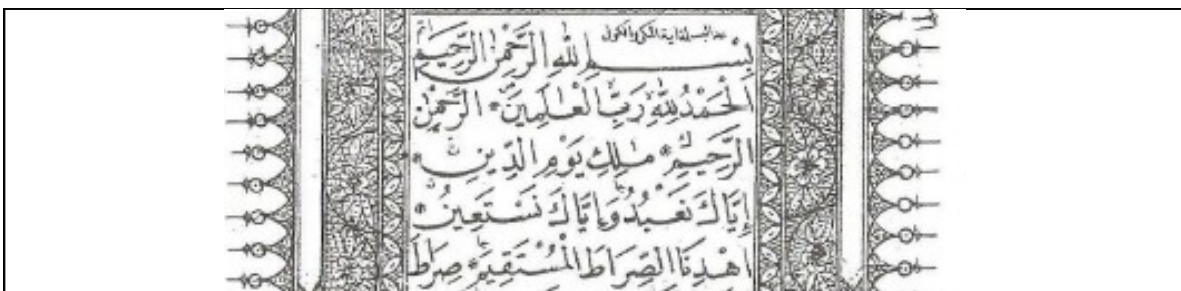 بِسْمِ اللّٰهِ الرَّحْمٰنِ الرَّحِيْمِ
اَلْحَمْدُ لِلّٰهِ رَبِّ الْعٰلَمِيْنَ * الرَّحْمٰنِ
الرَّحِيْمِ * مٰلِكِ يَوْمِ الدِّيْنِ *
اِيَّاكَ نَعْبُدُ وَاِيَّاكَ نَسْتَعِيْنُ *
اِهْدِنَا الصِّرَاطَ الْمُسْتَقِيْمَ * صِرَاطَ